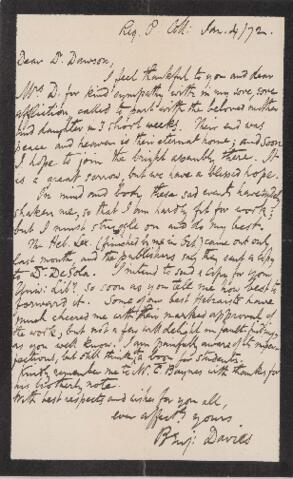 Reg. P. Coll: Jan. 4/72.
Dear Dr. Dawson,
I feel thankful to you and dear
Mrs D. for kind sympathy with me in my sore, sore
affliction, called to part with the beloved mother
and daughter in 3 short weeks. Their end was
peace and heaven is their eternal home; and soon
I hope to join the bright assembly there. It
is a great sorrow, but we have a blessed hope.
In mind and body these sad events have sadly
shaken me, so that I am hardly fit for work;
but I must struggle on and do my best.
The Heb. Lex. (finished by me in Oct.) came out only
last month, and the publishers say they sent a copy
to Dr. DeSola. I intend to send a copy for your
Univ: Liby. so soon as you tell me how best to
forward it. Some of our best Hebraists have
much cheered me with their marked approval of
the work, but not a few will delight in fault finding,
as you well know. I am painfully aware of its imper-
fections, but still think it a boon for students.
Kindly remember me to Mr. Baynes with thanks for
his brotherly note.
With best respects and wishes for you all,
ever affectly yours
Benj: Davies